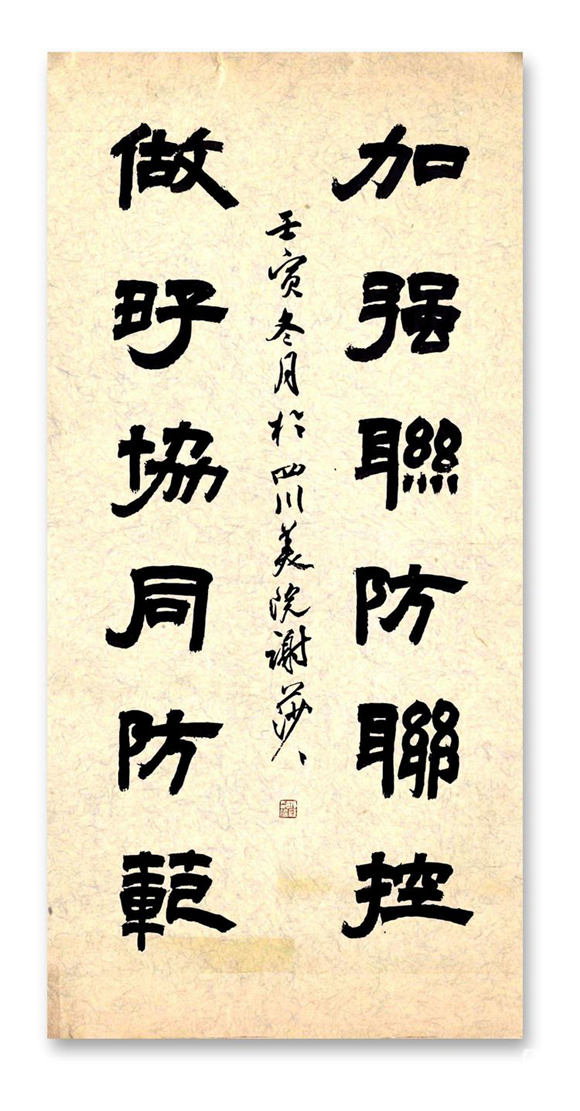 加强聯防聯控
壬寅冬月於四川美院谢莎
做好協同防範